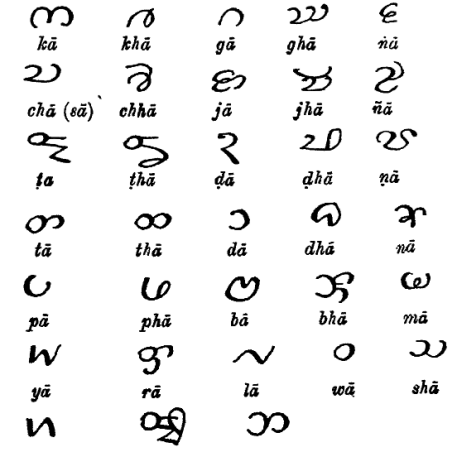 𑄇 𑄈 𑄉 𑄊 𑄋
kā khā gā ghā ṅā
𑄌 𑄍 𑄎 𑄏 𑄐
chā (sā) chhā jā jhā ñā
𑄑 𑄒 𑄓 𑄔 𑄕
ṭa ṭhā ḍā ḍhā ṇā
𑄖 𑄗 𑄘 𑄙 𑄚
tā thā dā dhā nā
𑄛 𑄜 𑄝 𑄞 𑄟
pā phā bā bhā mā
𑄡 𑄢 𑄣 𑄤 𑄥
yā rā lā wā shā
𑄦 𑄃